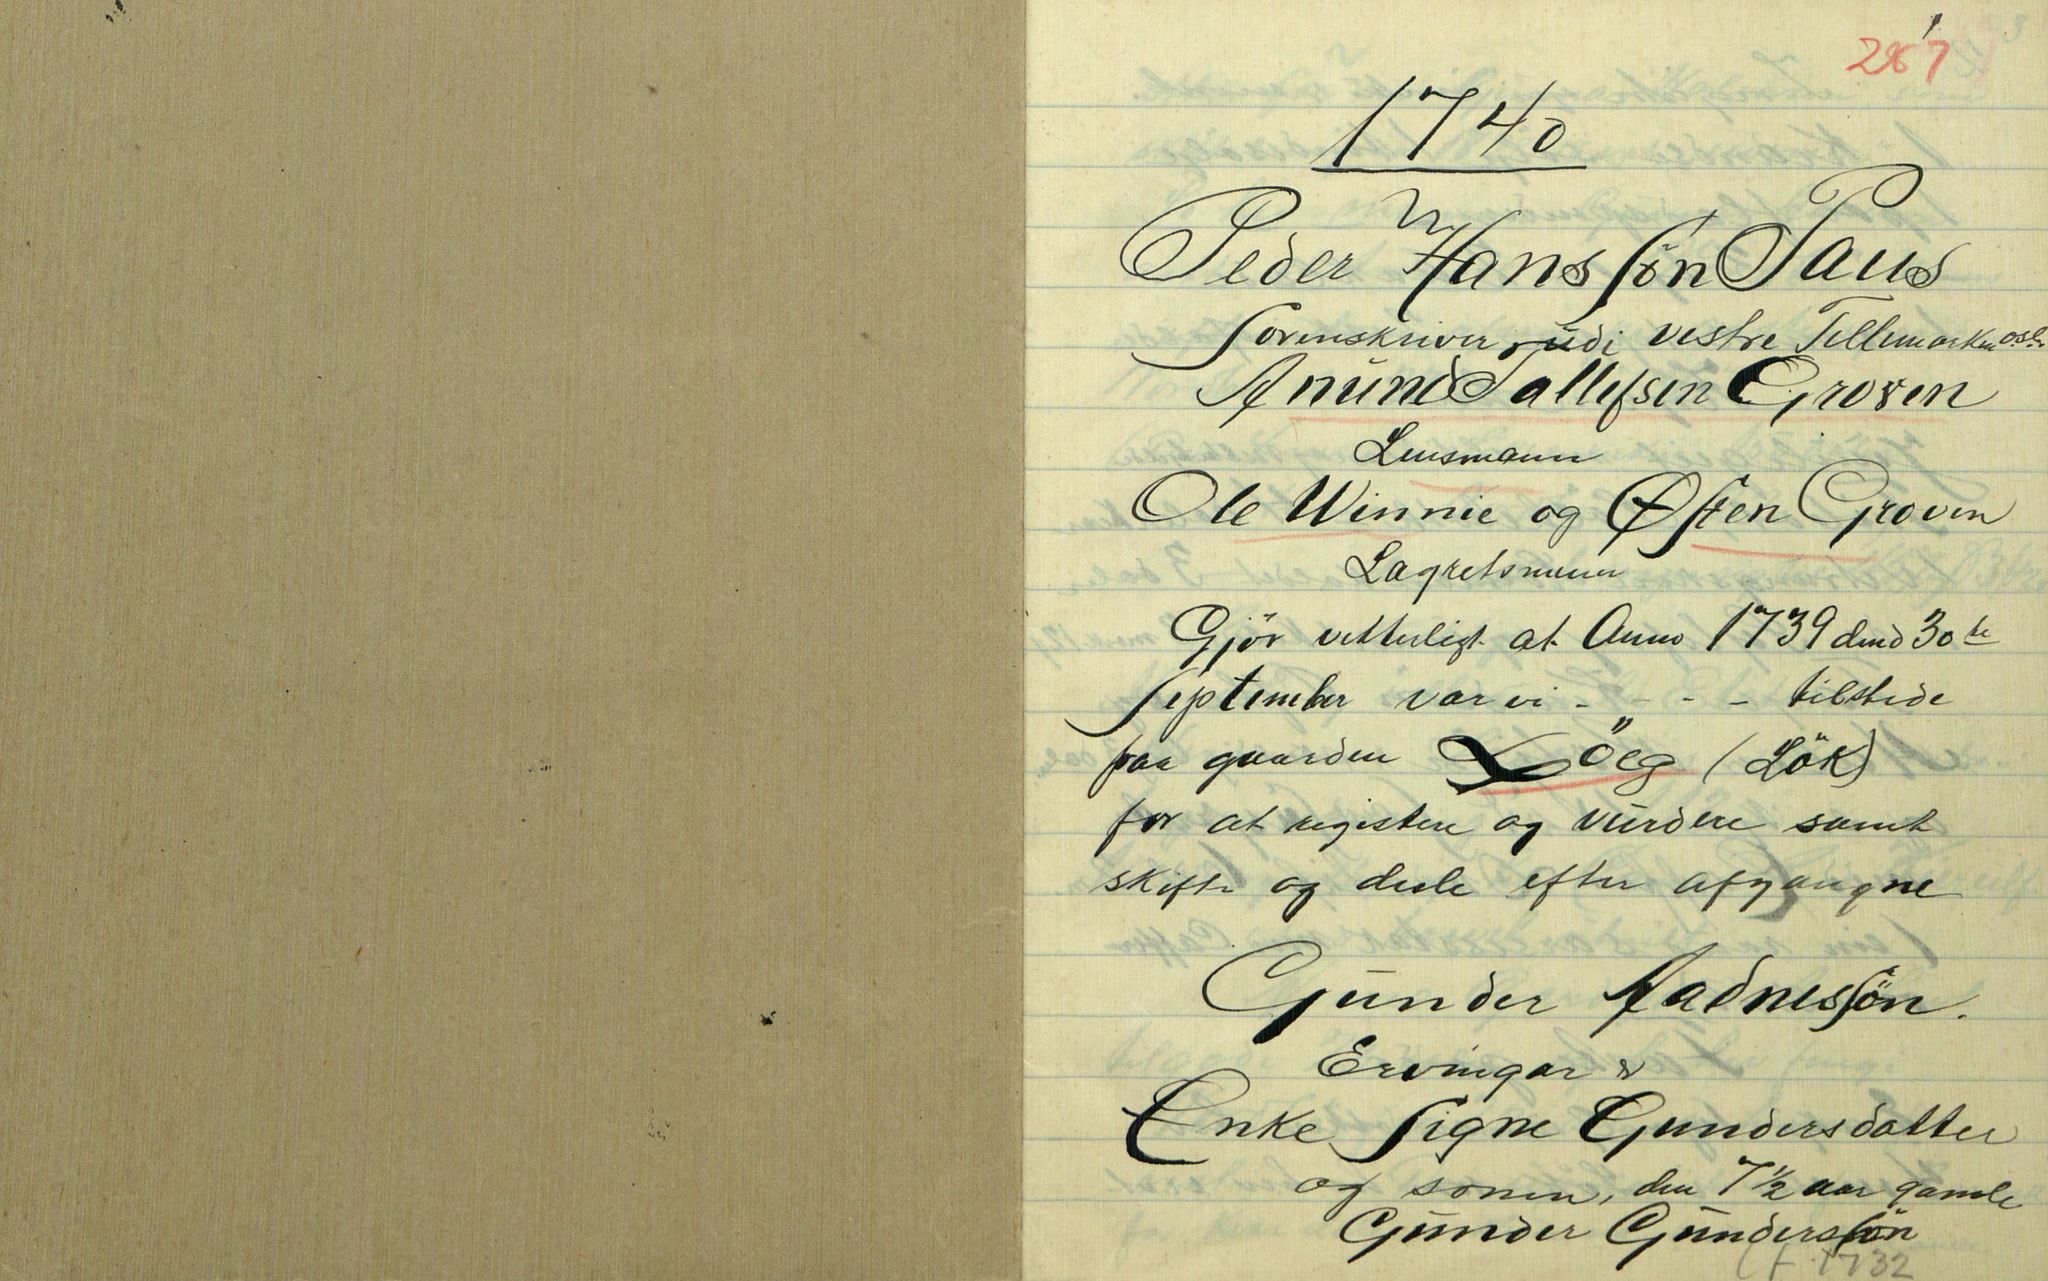 1
267
1740
Peder Hanssøn Paus
Sorenskriver udi vestre Tellemarken osv.
Anund Tallefsen Groven
Lensmann
Ole Winnie og Østen Groven
Lagretsmenn
Gjör vitterligt at Anno 1739 dend 30te
September var vi - - - - tilstede
paa gaarden Löeg (Lök)
for at registere og vurdere samt
skifte og deele efter afgangne
Gunder Aadnessøn.
Ervingar:
Enke Signe Gundersdatter
og sonen, den 7 1/2 aar gamle
Gunder Gunderssön
(f. 1732